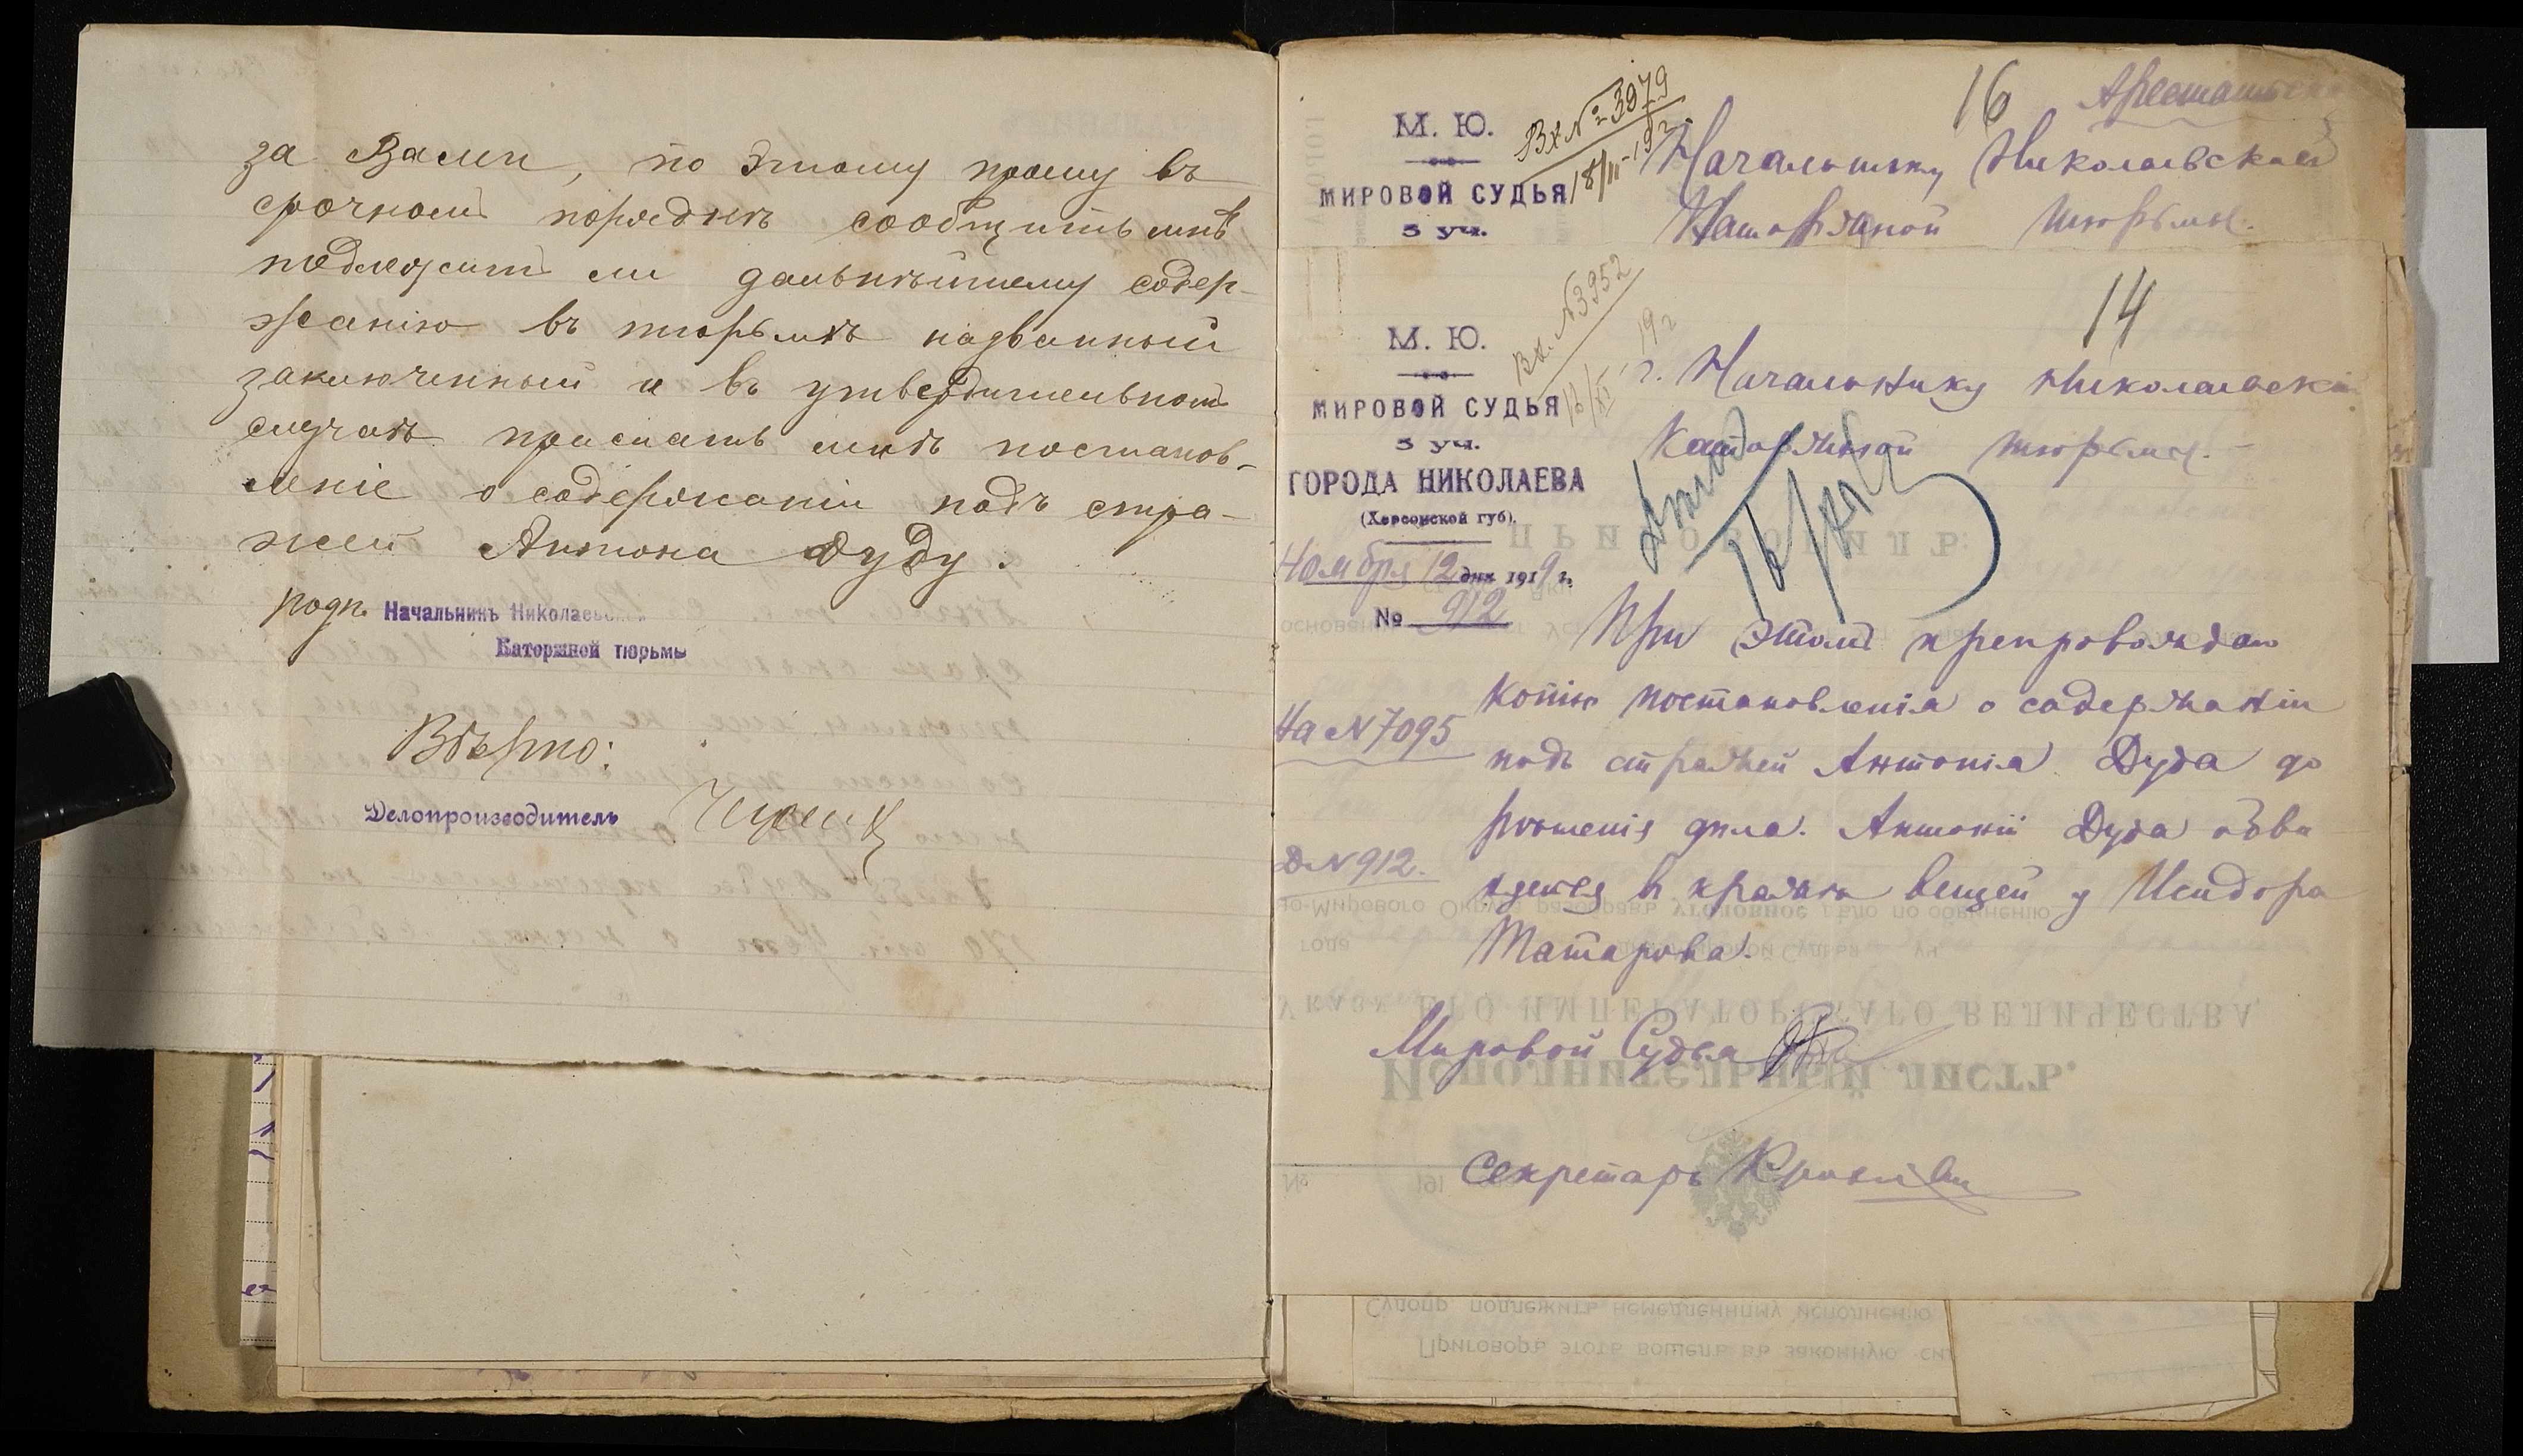 за Вами, по этому прошу въ
срочномъ порядкѣ сообщить мнѣ
подлежитъ ли дальнѣйшему содер-
жанію въ тюрьмѣ названный
заключенный и въ утвердительномъ
случаѣ прислать мнѣ постанов-
леніе о содержаніи подъ стра-
жей Антона Дуду.
подп. Начальникъ Николаевской
Каторжной тюрьмы
Вѣрно:
Делопроизводитель
16
М. Ю.
Вх № 3979
МИРОВОЙ СУДЬЯ
3 уч.
Начальнику Николаевской
Каторжной тюрьмы.
14
М. Ю.
Вх. № 3952
МИРОВОЙ СУДЬЯ
3 уч.
ГОРОДА НИКОЛАЕВА
(Херсонской губ).
Ноября 12 дня 1919 г.
№ 912
г. Начальнику Николаевской
Каторжной тюрьмы.
На № 7095
Д № 912.
При этомъ препровождаю
копію постановленія о содержаніи
подъ стражей Антонія Дуда до
рѣшенія дѣла. Антоній Дуда обви
няется в кражѣ вещей у Исидора
Татарова.
Мировой Судья
Секретарь